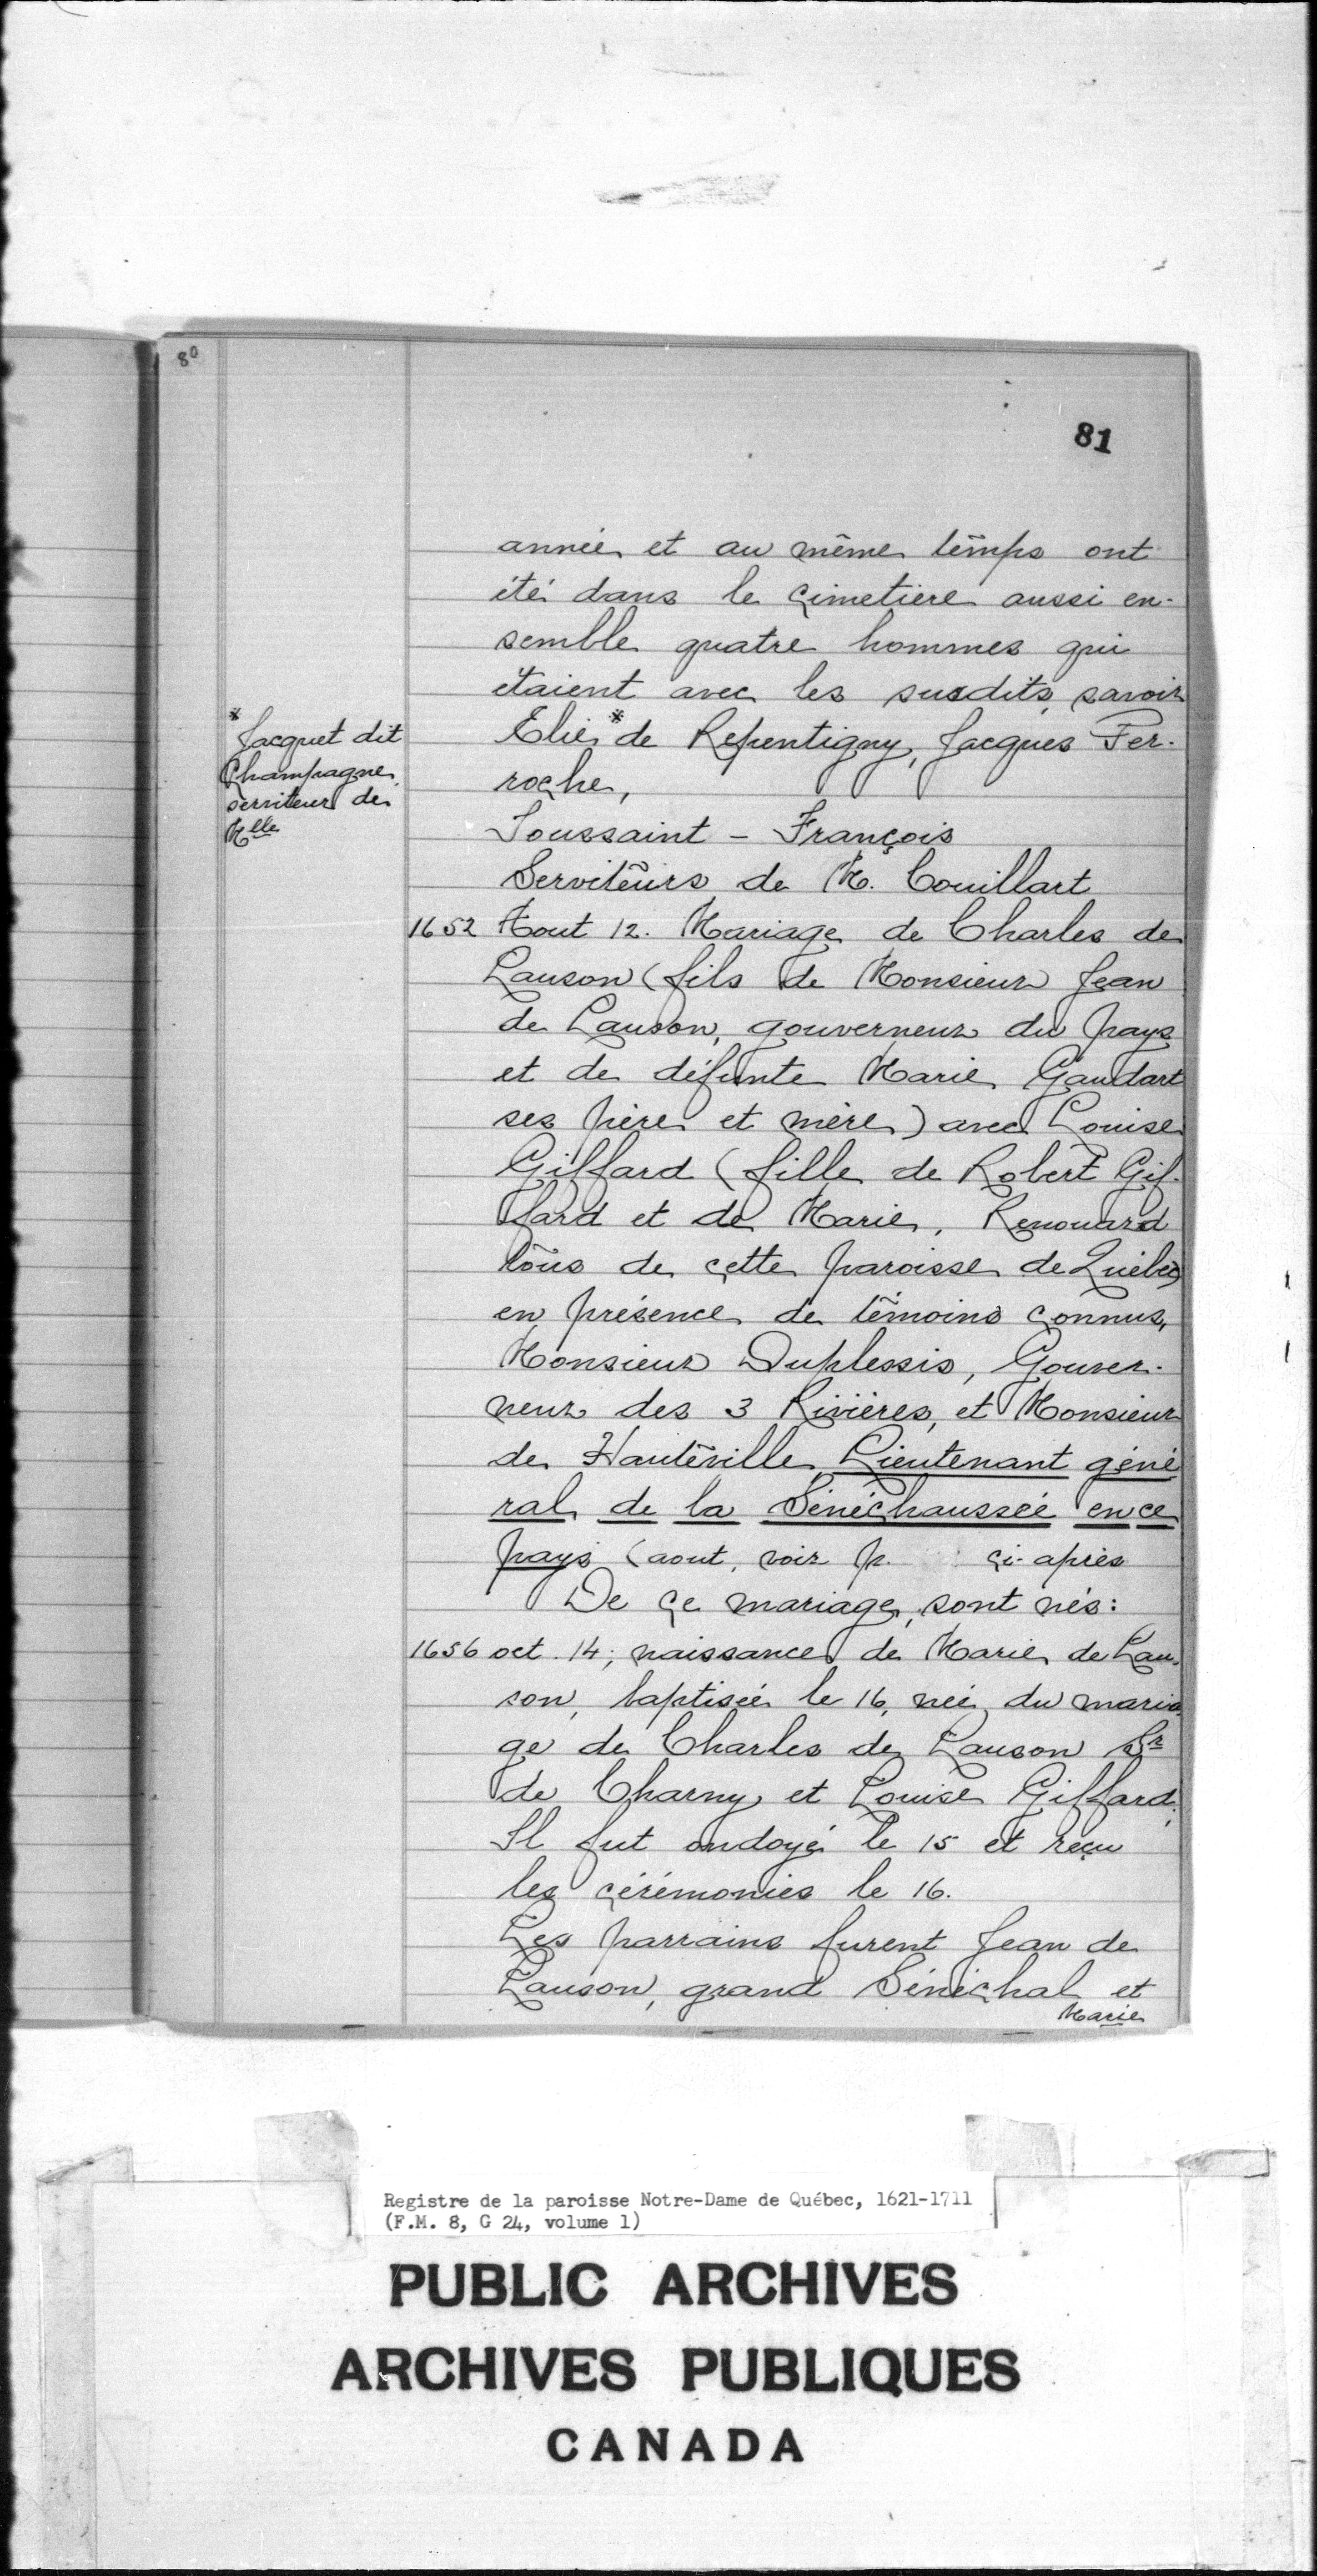 80
81
année et au même temps ont
été dans le cimetière aussi en-
semble quatre hommes qui
étaient avec les susdits, savoir
* Jacquet dit
Champagne
serviteur de
Mlle
Elie* de Repentigny, Jacques Fer-
roche,
Toussaint - François
Serviteurs de M. Couillart
1652 Aout 12. Mariage de Charles de
Lauson (fils de Monsieur Jean
de Lauson, gouverneur du pays
et de défunte Marie Gaudart
ses père et mère) avec Louise
Giffard (fille de Robert Gif-
fard et de Marie, Renouard
tous de cette paroisse de Québec)
en présence de témoins connus,
Monsieur Duplessis, Gouver-
neur des 3 Rivières, et Monsieur
de Hauteville Lieutenant géné
ral de la Sénéchaussée en ce
pays (aout, voir p. ci-après
De ce mariage, sont nés:
1656 oct. 14; naissance de Marie de Lau-
son, baptisée le 16, née du maria
ge de Charles de Lauson Sr
de Charny et Louise Giffard;
Il fut ondoyé le 15 et reçu
les cérémonies le 16.
Les parrains furent Jean de
Lauson, grand Sénéchal et
Marie
Registre de la paroisse Notre-Dame de Québec, 1621-1711
(F.M. 8, G 24, volume 1)
PUBLIC ARCHIVES
ARCHIVES PUBLIQUES
CANADA